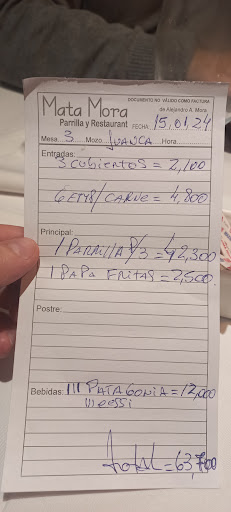 DOCUMENTO NO VÁLIDO COMO FACTURA
Mata Mora
de Alejandro A. Mora
Parrilla y Restaurant FECHA: 15.01.24
Mesa 3 Mozo JUANCA Hora
Entradas:
3 CUBIERTOS = 2,100
6 EMP/CARNE = 4,800
Principal:
1 PARRILLA P/3 = 42,300
1 PAPA FRITAS = 2,500.
Postre:
Bebidas: III PATAGONIA = 12,000
Total = 63,700